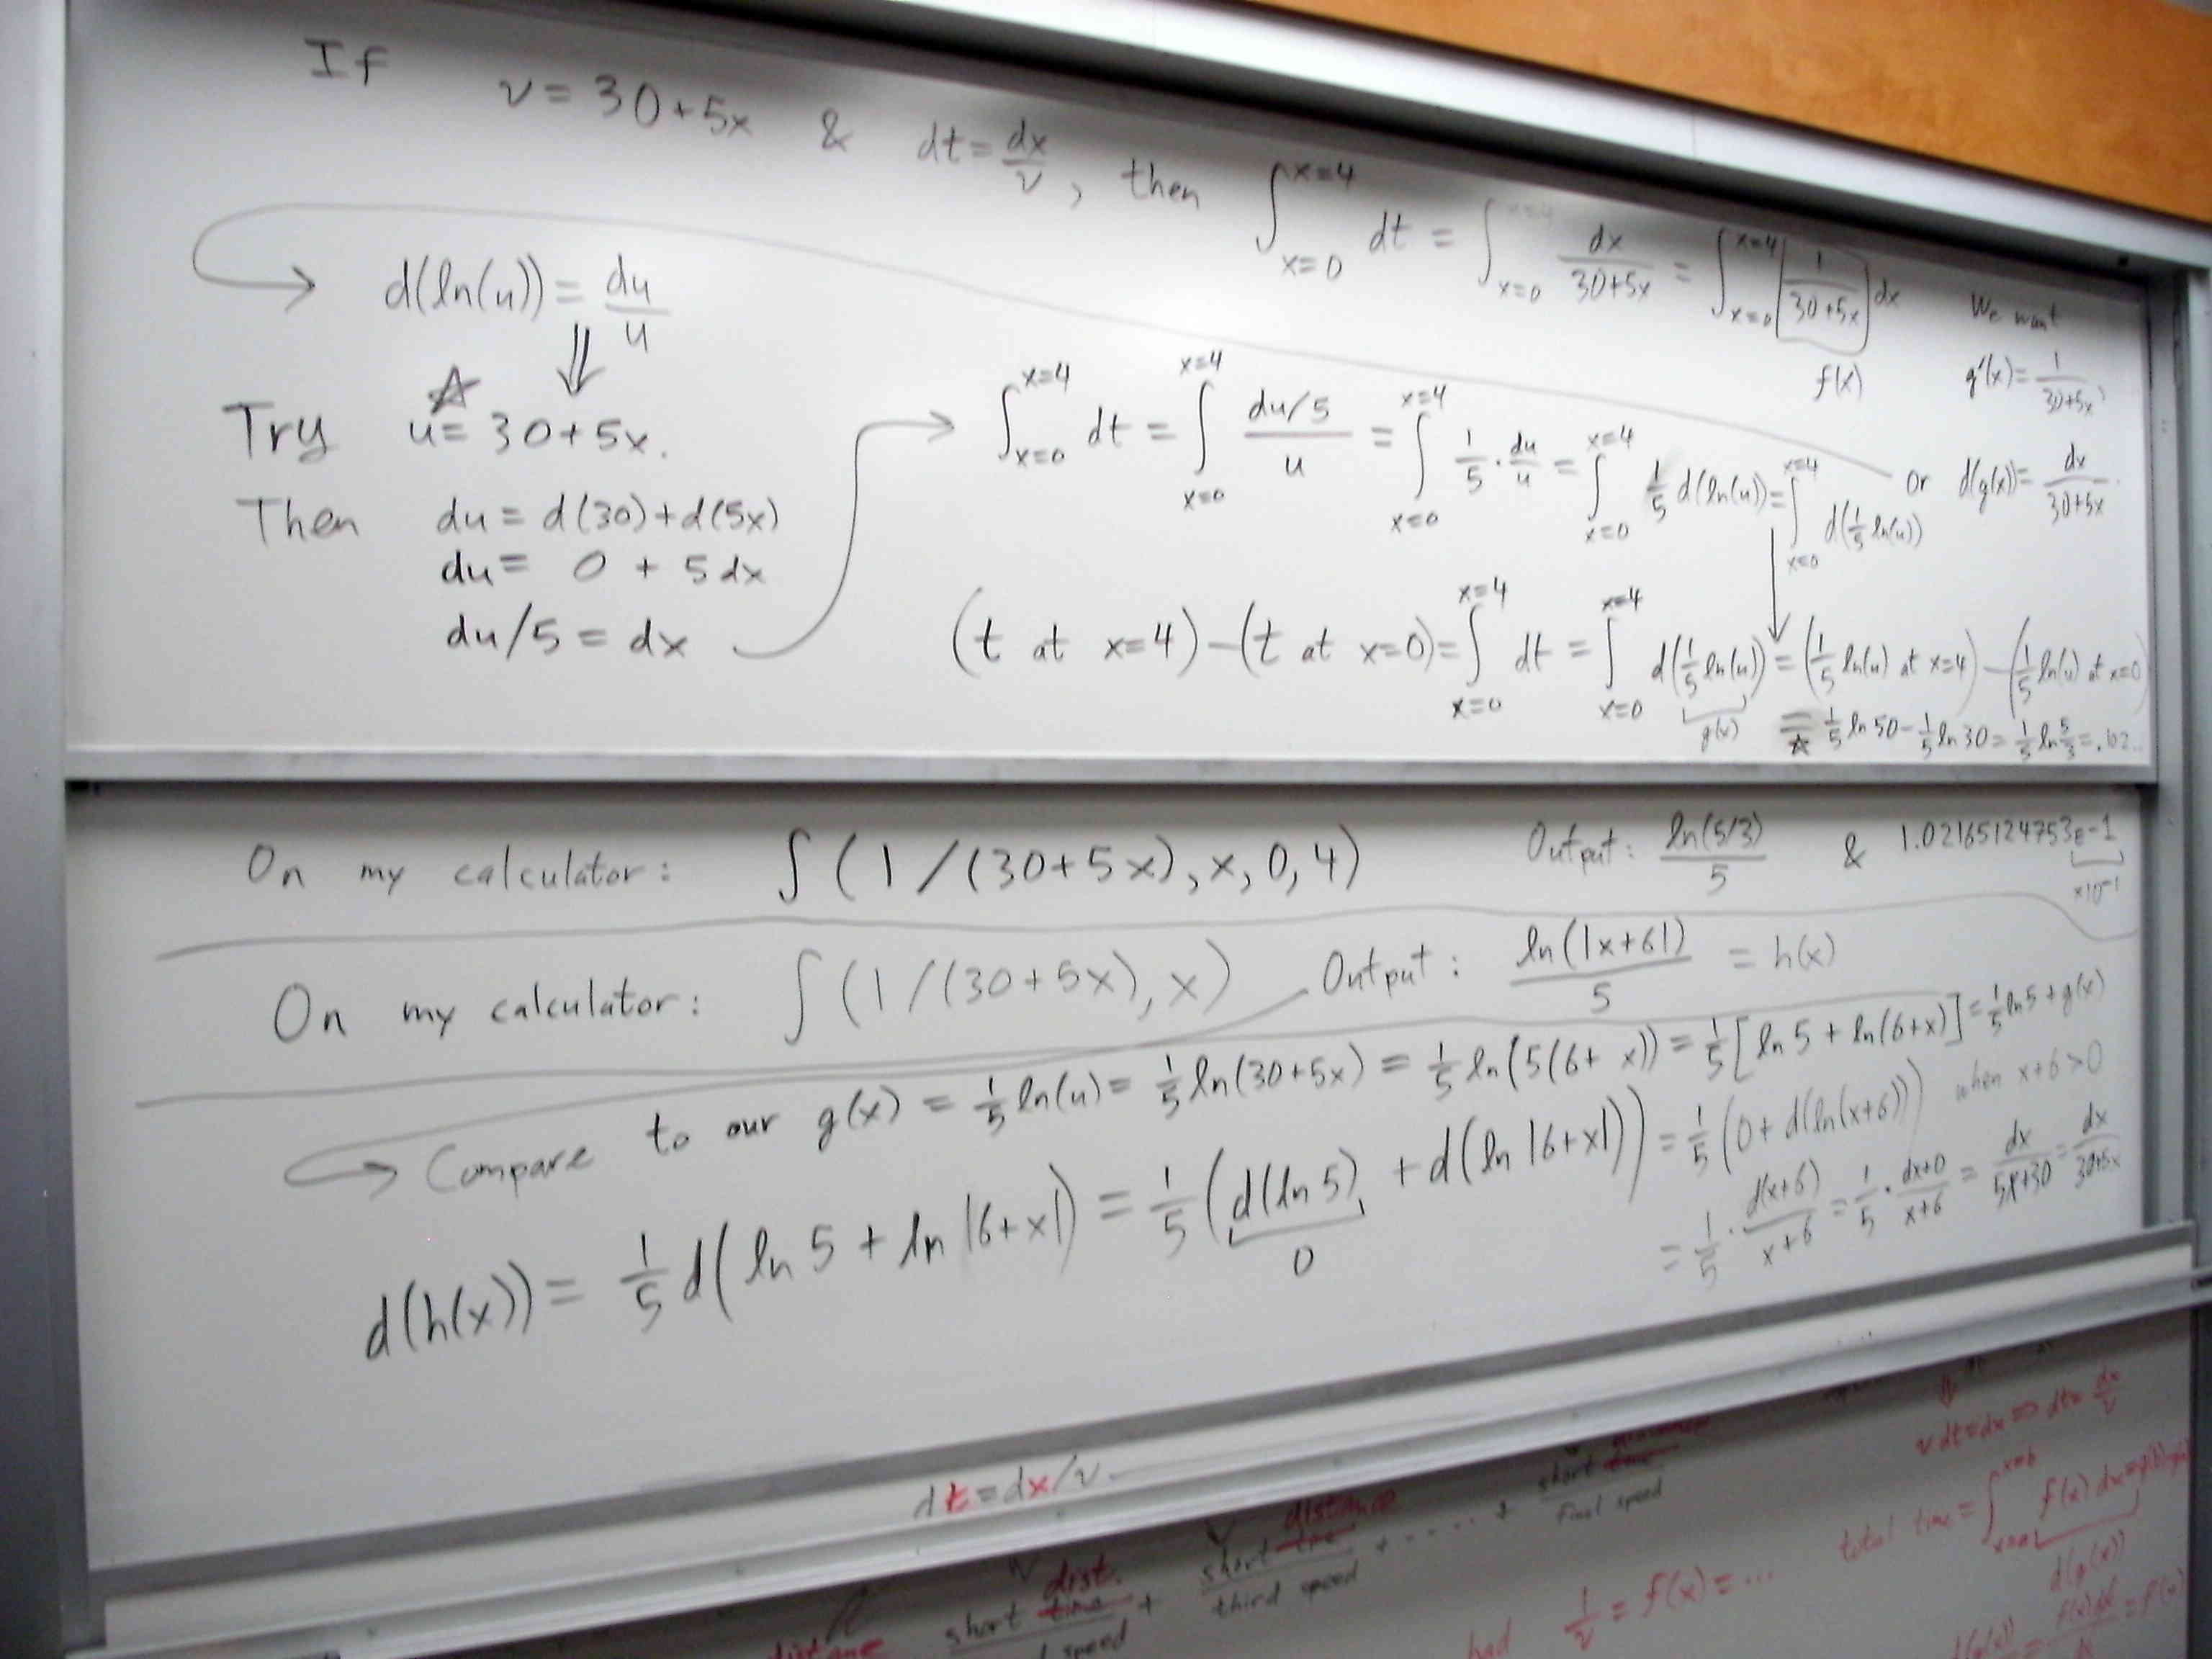 If v = 30+5x & dt = dx/v, then ∫_{x=0}^{x=4} dt = ∫_{x=0}^{x=4} dx/(30+5x) = ∫_{x=0}^{x=4} 1/(30+5x) dx
f(x)
We want
g'(x) = 1/(30+5x),
or d(g(x)) = dx/(30+5x).
d(ln(u)) = du/u
⇓
☆
Try u = 30+5x.
Then du = d(30)+d(5x)
du = 0 + 5dx
du/5 = dx
∫_{x=0}^{x=4} dt = ∫_{x=0}^{x=4} (du/5)/u = ∫_{x=0}^{x=4} 1/5 · du/u = ∫_{x=0}^{x=4} 1/5 d(ln(u)) = ∫_{x=0}^{x=4} d(1/5 ln(u))
(t at x=4) − (t at x=0) = ∫_{x=0}^{x=4} dt = ∫_{x=0}^{x=4} d(1/5 ln(u)) = (1/5 ln(u) at x=4) − (1/5 ln(u) at x=0)
g(x)
=☆ 1/5 ln 50 − 1/5 ln 30 = 1/5 ln 5/3 = .102...
On my calculator: ∫(1/(30+5x),x,0,4) Output: ln(5/3)/5 & 1.02165124753E-1
×10^-1
On my calculator: ∫(1/(30+5x),x) Output: ln(|x+6|)/5 = h(x)
Compare to our g(x) = 1/5 ln(u) = 1/5 ln(30+5x) = 1/5 ln(5(6+x)) = 1/5 [ln 5 + ln(6+x)] = 1/5 ln 5 + g(x)
d(h(x)) = 1/5 d(ln 5 + ln|6+x|) = 1/5 (d(ln 5) + d(ln|6+x|)) = 1/5 (0 + d(ln(x+6))) when x+6>0
0
= 1/5 · d(x+6)/(x+6) = 1/5 · (dx+0)/(x+6) = dx/(5x+30) = dx/(30+5x)
dt = dx/v
v dt = dx ⇒ dt = dx/v
short time dist. + short time distance / third speed + ..... + short / final speed
distance
speed
total time = ∫ f(x) dx
d(g(x))
had 1/v = f(x) = ...
= f(x)